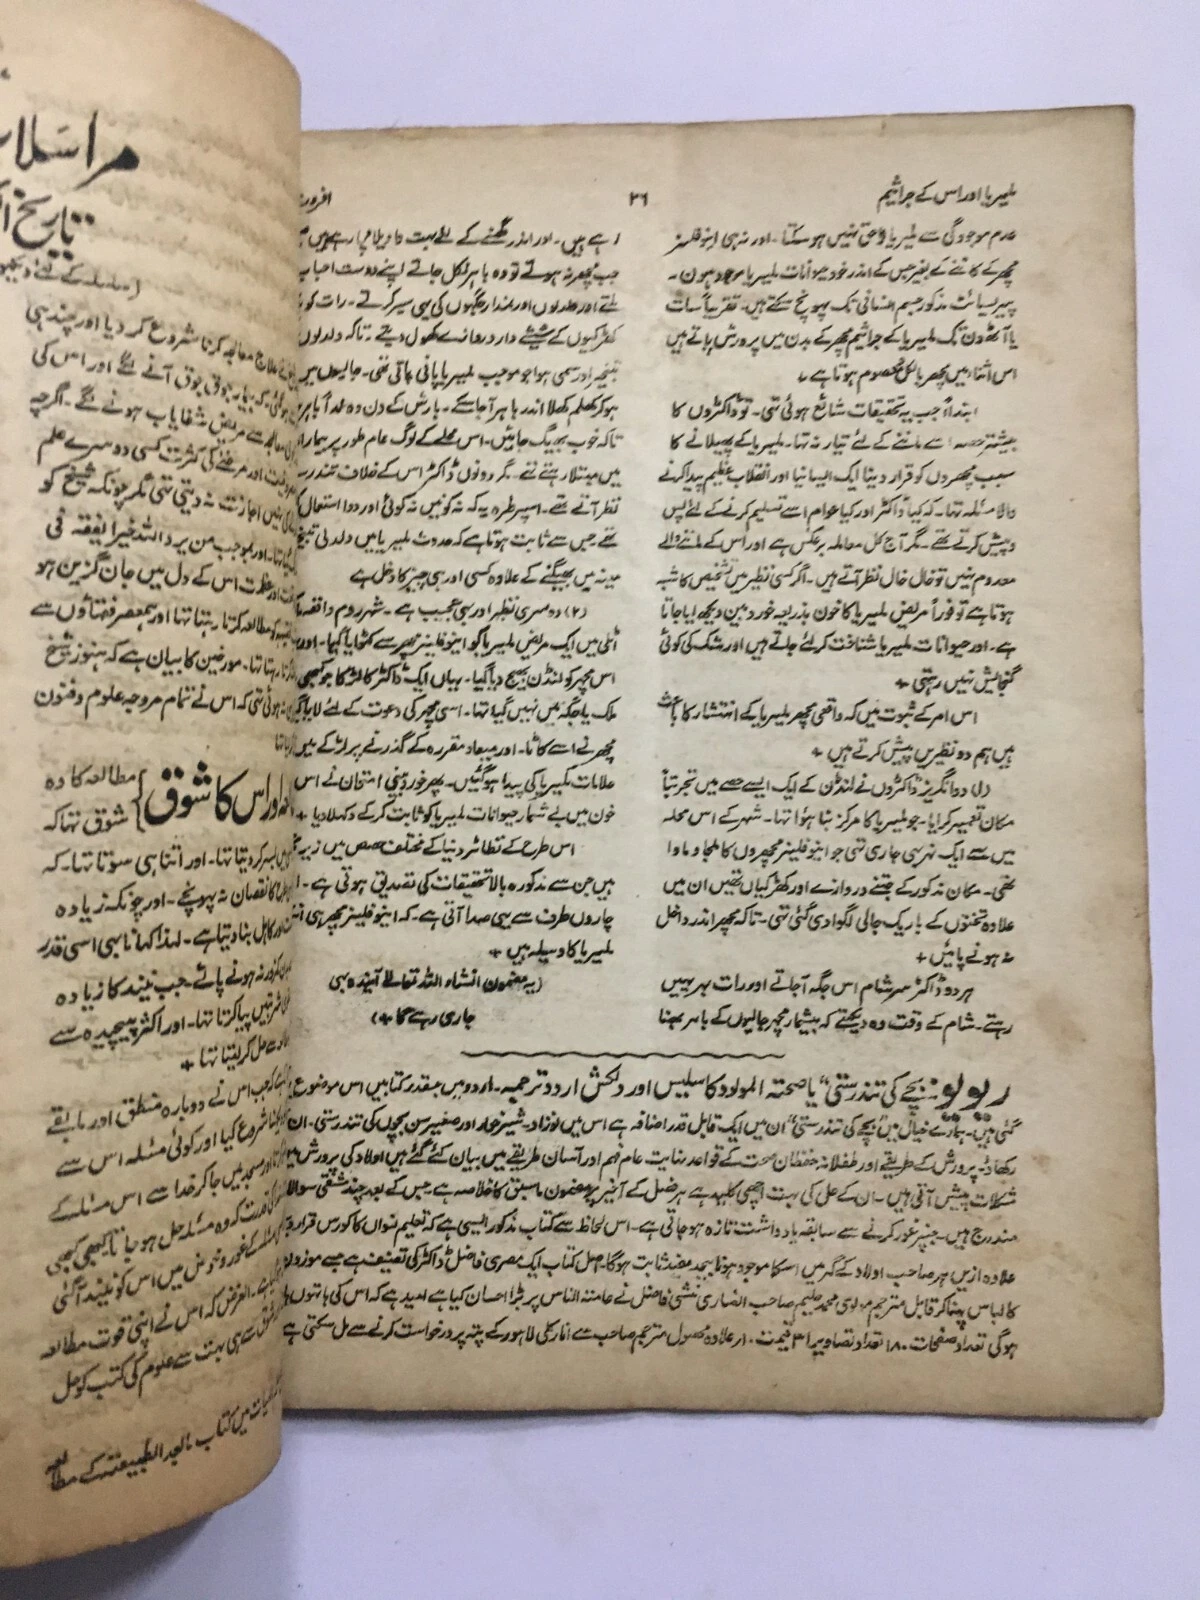 ملیریا اور اس کے جراثیم
۳۶
عدم موجودگی سے ملیریا واقع نہیں ہو سکتا۔ اور نہ ہی اینو فلینز
مچھر کے کاٹنے کے بغیر جس کے اندر خود حیوانات ملیریا موجود ہوں۔
پیریسائٹ مذکور جسم انسانی تک پہونچ سکتے ہیں۔ تقریباً سات
یا آٹھ دن تک ملیریا کے جراثیم مچھر کے بدن میں پرورش پاتے ہیں
اس اثنا میں مچھر بالکل معصوم ہوتا ہے +
ابتداءً جب یہ تحقیقات شائع ہوئی تہی۔ تو ڈاکٹروں کا
بیشتر حصہ اسے ماننے کے لئے تیار نہ تہا۔ ملیریا کے پھیلانے کا
سبب مچھروں کو قرار دینا ایک ایسا نیا اور انقلاب عظیم پیدا کرنے
والا مسئلہ تہا۔ کہ کیا ڈاکٹر اور کیا عوام اسے تسلیم کرنے کے لئے پس
و پیش کرتے تھے۔ مگر آج کل معاملہ برعکس ہے اور اس کے نہ ماننے والے
معدوم نہیں تو خال خال نظر آتے ہیں۔ اگر کسی نظیر میں تشخیص کا شبہ
ہوتا ہے تو فوراً مریض ملیریا کا خون بذریعہ خوردبین دیکھ لیا جاتا
ہے۔ اور حیوانات ملیریا شناخت کر لئے جاتے ہیں اور شک کی کوئی
گنجایش نہیں رہتی +
اس امر کے ثبوت میں کہ واقعی مچھر ملیریا کے انتشار کا باعث
ہیں ہم دو نظریں پیش کرتے ہیں +
(۱) دو انگریز ڈاکٹروں نے لنڈن کے ایک ایسے حصے میں تجربتاً
مکان تعمیر کرایا۔ جو ملیریا کا مرکز بنا ہوا تہا۔ شہر کے اس محلہ
میں سے ایک نہر بہی جاری تہی جو اینو فلینز مچھروں کا ملجا و ماوا
تہی۔ مکان مذکور کے جتنے دروازے اور کھڑکیاں تھیں ان میں
علاوہ تختوں کے باریک جالی لگوا دی گئی تہی۔ تاکہ مچھر اندر داخل
نہ ہونے پائیں +
ہر دو ڈاکٹر سر شام اس جگہ آ جاتے اور رات بہر یہیں
رہتے۔ شام کے وقت وہ دیکھتے کہ بیشمار مچھر جالیوں کے باہر بھنبھنا
رہے ہیں۔ اور اندر گھسنے کے لئے بہت واویلا مچا رہے ہیں
جب مچھر نہ ہوتے تو وہ باہر نکل جاتے اپنے دوست احباب
ملتے اور دلدلوں اور نمدار جگہوں کی بہی سیر کرتے۔ رات کو
کھڑکیوں کے شیشے دار دروازے کھول دیتے۔ تاکہ دلدلوں
اور سمی ہوا جو موجب ملیریا پائی جاتی تہی۔ جالیوں میں
ہو کر کھلم کھلا اندر باہر آ جا سکے۔ بارش کے دن وہ عمداً باہر
تاکہ خوب بھیگ جائیں۔ اس محلے کے لوگ عام طور پر بیمار
میں مبتلا رہتے تھے۔ مگر دونوں ڈاکٹر اس کے خلاف تندرست
نظر آتے تھے۔ اسپر طرہ یہ کہ نہ کونین نہ کوئی اور دوا استعمال
تھے جس سے ثابت ہوتا ہے کہ حدوث ملیریا میں دلدلی
مینہ میں بھیگنے کے علاوہ کسی اور ہی چیز کا دخل ہے
(۲) دوسری نظیر اور بہی عجیب ہے۔ شہر روم واقعہ
اٹلی میں ایک مریض ملیریا کو اینو فلینز مچھر سے کٹوایا گیا۔ اور
اس مچھر کو لنڈن بھیج دیا گیا۔ یہاں ایک ڈاکٹر کا لڑکا جو کبھی
ملک یا جگہ میں نہیں گیا تہا۔ اسی مچھر کی دعوت کے لئے لایا گیا
مچھر نے اسے کاٹا۔ اور میعاد مقررہ کے گذرنے پر لڑکے میں
علامات ملیریا کی پیدا ہو گئیں۔ پھر خوردبینی امتحان نے اس
خون میں بے شمار حیوانات ملیریا کو ثابت کر کے دکھلا دیا +
اس طرح کے نظائر دنیا کے مختلف حصص میں زیر
ہیں جن سے مذکورہ بالا تحقیقات کی تصدیق ہوتی ہے۔
چاروں طرف سے یہی صدا آتی ہے۔ کہ اینو فلینز مچھر ہی
ملیریا کا وسیلہ ہیں +
(یہ مضمون انشاء اللہ تعالے آئیندہ بہی
جاری رہے گا +)
ریویو: بچے کی تندرستی" یا صحتہ المولود کا سلیس اور دلکش اردو ترجمہ۔ اردو میں جسقدر کتابیں اس موضوع
گئی ہیں۔ ہمارے خیال میں "بچے کی تندرستی" ان میں ایک قابل قدر اضافہ ہے اس میں نوزاد۔ شیر خوار اور صغیر سن بچوں کی تندرستی۔ ان
رکھاؤ۔ پرورش کے طریقے اور طفلانہ حفظان صحت کے قواعد نہایت عام فہم اور آسان طریقے میں بیان کئے گئے ہیں اولاد کی پرورش میں
مشکلات پیش آتی ہیں۔ ان کے حل کی بہت اچھی کلید ہے ہر فصل کے آخیر پر مضمون ما سبق کا خلاصہ ہے جس کے بعد چند مشقی سوالات
مندرج ہیں۔ جنپر غور کرنے سے سابقہ یادداشت تازہ ہو جاتی ہے۔ اس لحاظ سے کتاب مذکور ایسی ہے کہ تعلیم نسواں کا کورس قرار
علاوہ ازیں ہر صاحب اولاد کے گھر میں اسکا موجود ہونا بیحد مفید ثابت ہوگا۔ اصل کتاب ایک مصری فاضل ڈاکٹر کی تصنیف ہے جسے موزوں
کا لباس پہنا کر قابل مترجم مولوی محمد حلیم صاحب انصاری منشی فاضل نے عامتہ الناس پر بڑا احسان کیا ہے امید ہے کہ اس کی ہاتھوں
ہوگی تعداد صفحات ۱۸۰ تعداد تصاویر ۳۱ قیمت ۱۰ر علاوہ محصول مترجم صاحب سے انارکلی لاہور کے پتہ پر درخواست کرنے سے مل سکتی ہے
تاریخ
علاج معالجہ کرنا شروع کر دیا اور چند ہی
جوق جوق آنے لگے اور اس کی
سے مریض شفایاب ہونے لگے۔ اگرچہ
اور مرضی کی کثرت کسی دوسرے علم
اجازت نہ دیتی تہی مگر چونکہ شیخ کو
اس کے دل میں جان گزین ہو
مطالعہ کرتا رہتا تہا اور ہمعصر فضلاؤں سے
رہتا تہا۔ مورخین کا بیان ہے کہ ہنوز شیخ
کہ اس نے تمام مروجہ علوم و فنون
اور اس کا شوق
مطالعہ کا وہ
شوق تہا کہ
کر دیتا تہا۔ اور اتنا ہی سوتا تہا۔ کہ
کا نقصان نہ پہونچے۔ اور چونکہ زیادہ
کاہل بنا دیتا ہے۔ لہذا کہانا بہی اسی قدر
نہ ہونے پائے۔ جب نیند کا زیادہ
پیا کرتا تہا۔ اور اکثر پیچیدہ سے
حل کر لیتا تہا +
جب اس نے دوبارہ منطق اور مابقے
شروع کیا اور کوئی مسئلہ اس سے
مسجد میں جا کر خدا سے اس مسئلہ کے
کہ وہ مسئلہ حل ہو جاتا کبھی کبھی
غور و خوض میں اس کو نیند آ گئی
الغرض کہ اس نے اپنی قوت مطالعہ
سے ہی بہت سے علوم کی کتب کو حل
میں کتاب مابعد الطبیعتہ کے مطالعہ